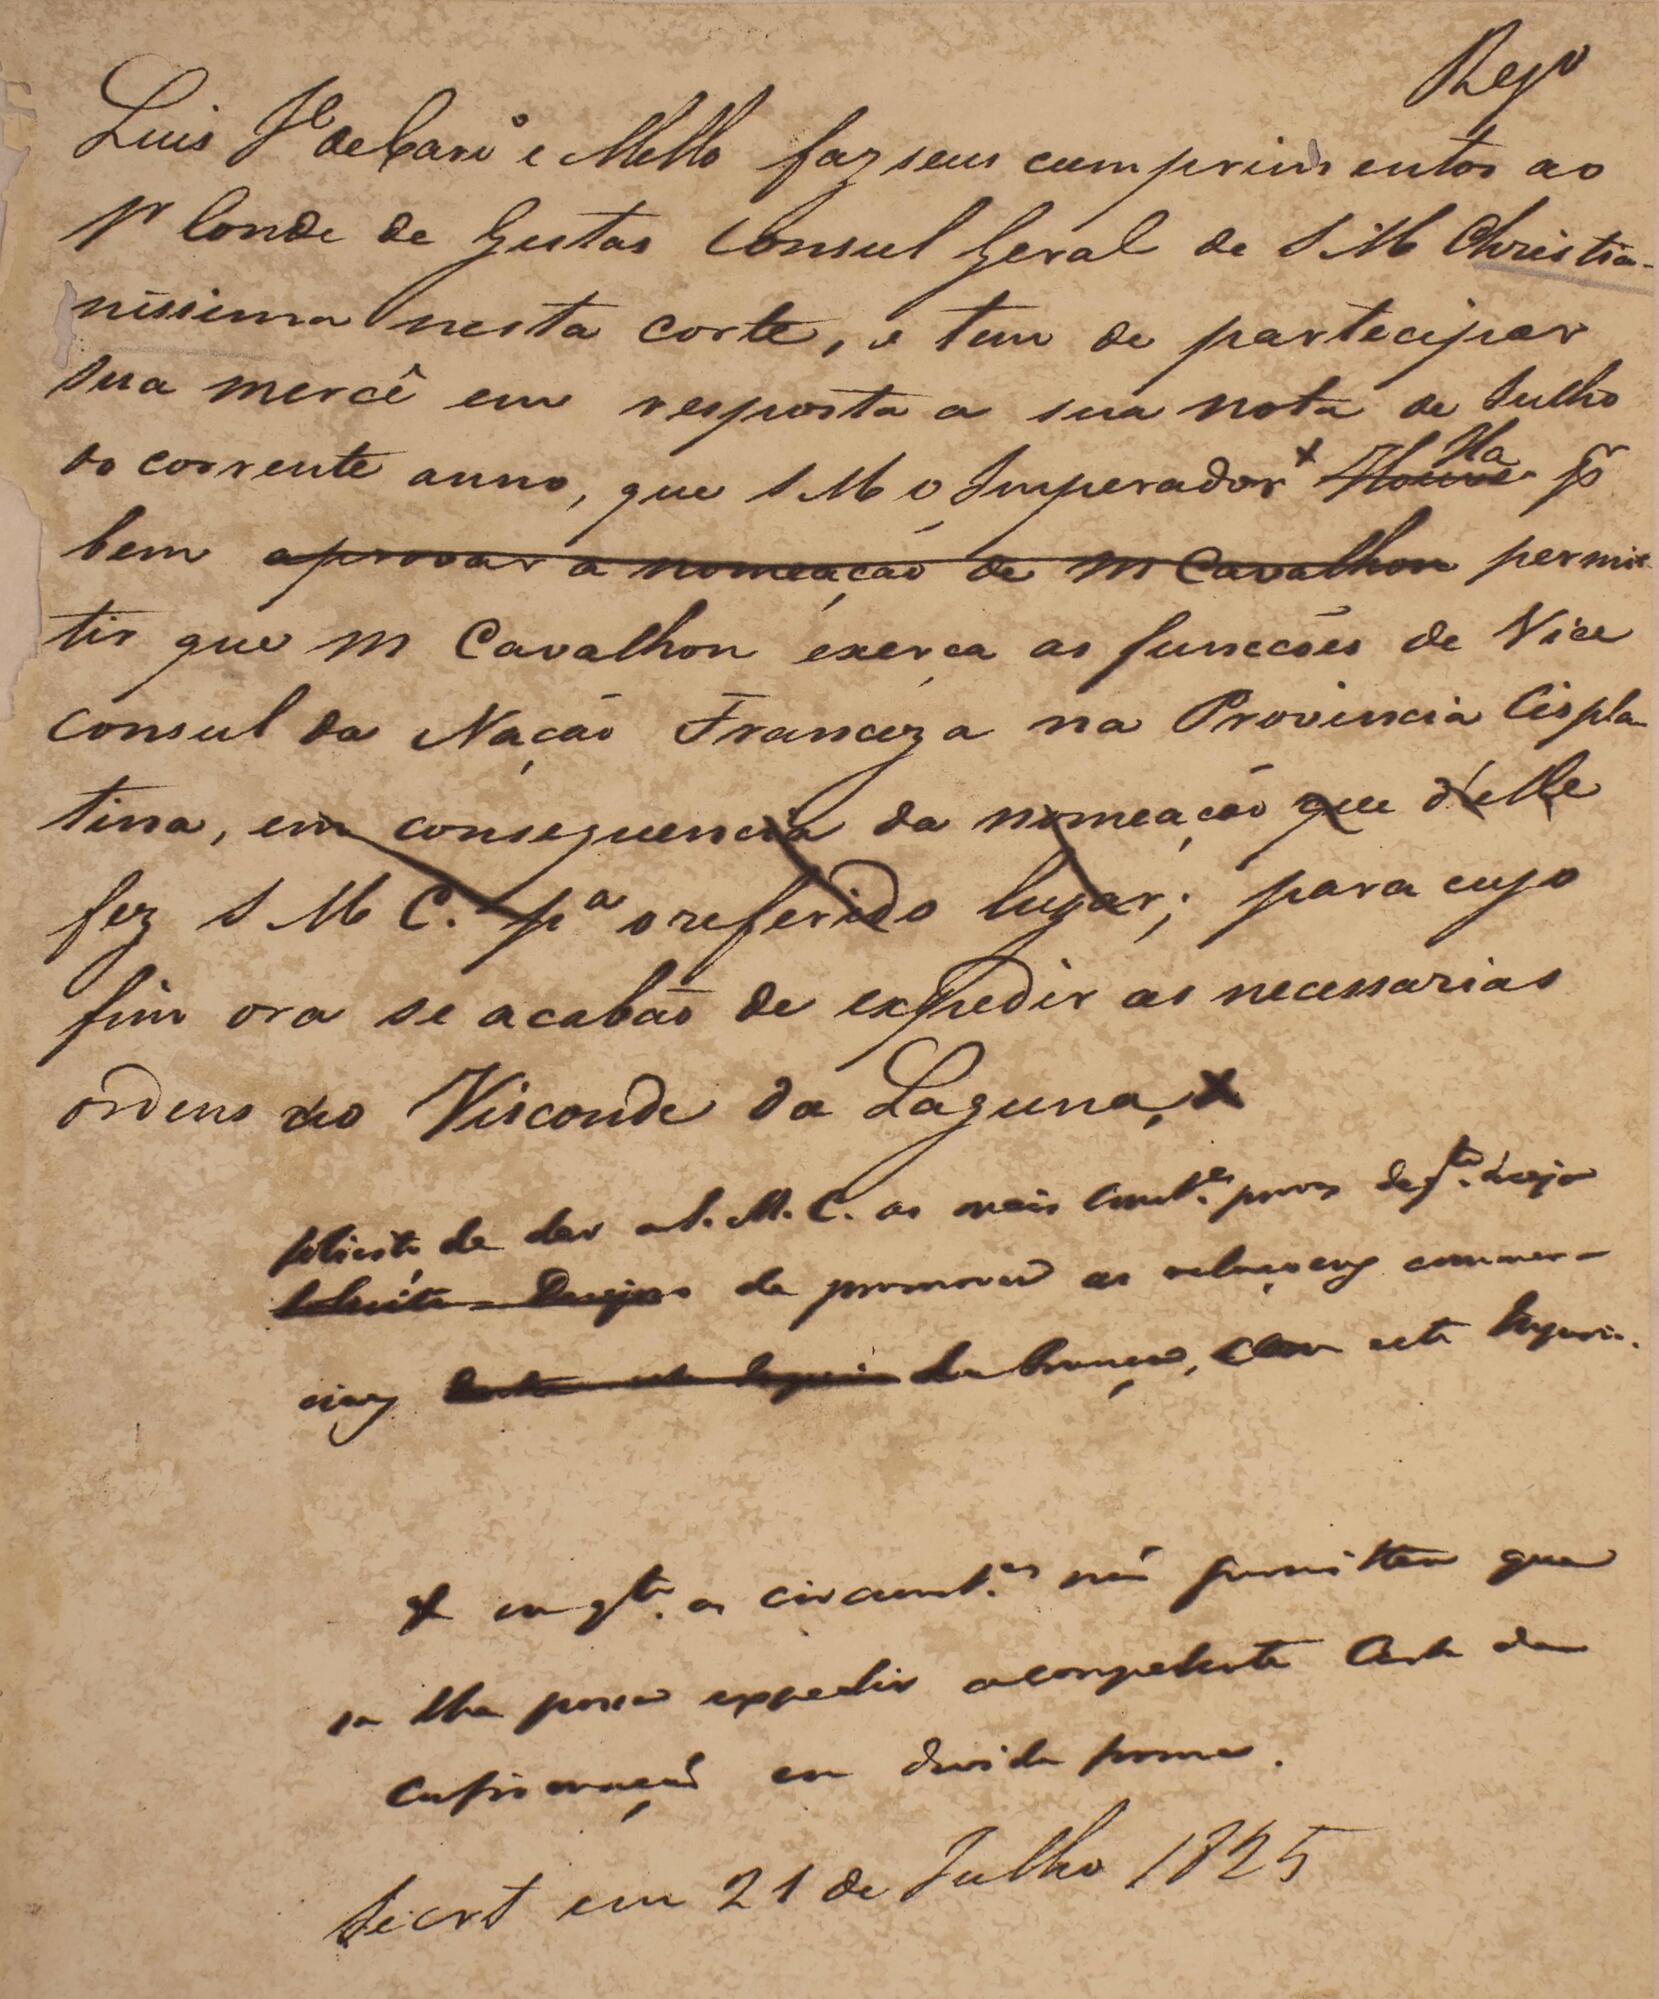 Regº
Luis Jᵉ de Carvº e Mello faz seus cumprimentos ao
Sr Conde de Gestas Consul Geral de S M Christia-
nissima nesta corte, e tem de partecipar
sua mercê em resposta a sua nota de Julho
do corrente anno, que S M o Imperador x Houve Ha pr
bem aprovar a nomeação de M Cavalhon permit
tir que M Cavalhon exerça as funccões de Vice
Consul da Nação Franceza na Provincia Cispla
tina, em consequencia da nomeação que d'elle
fez S M C. pª o referido lugar; para cujo
fim ora se acabão de expedir as necessarias
ordens ao Visconde da Laguna, x
solicito de dar a S. M. C. as mais const.es provas de st.a
solicito Dezejos de promover as relaçoens commer-
ciaes da França, com este Imperio.
x em qto. as circunst.as não permittem que
se lhe possa expedir a competente Carta de
Confirmação em devida forma.
Secrt em 21 de Julho 1825